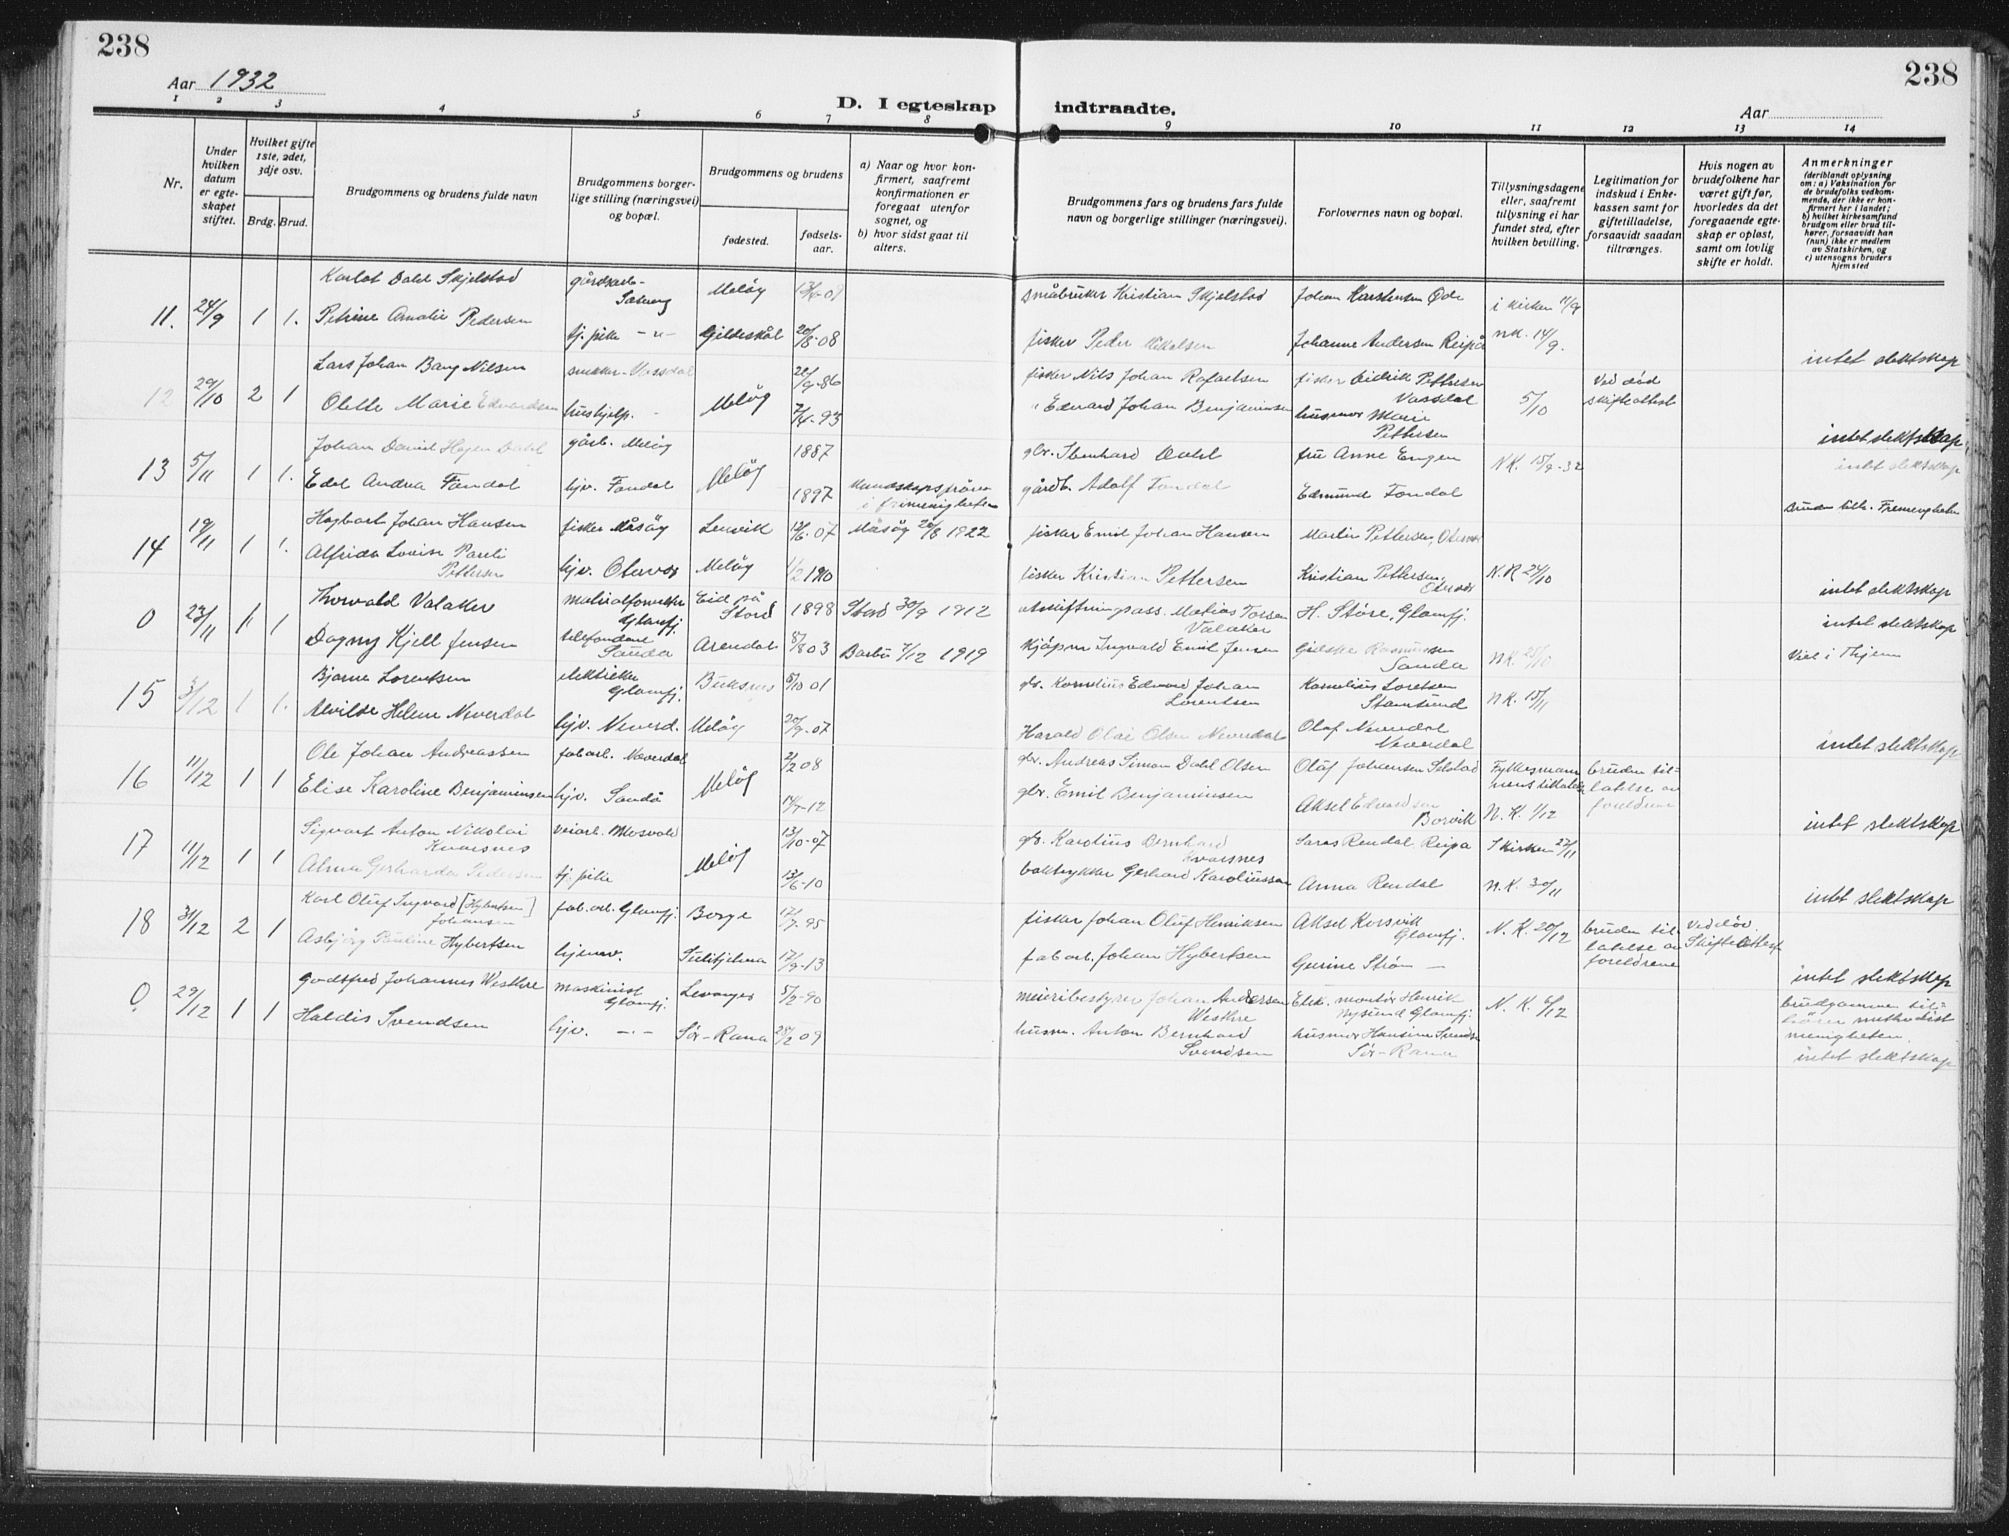 238
Aar 1932
D. I egteskap indtraadte.
Aar
238
1 2 3 4 5 6 7 8 9 10 11 12 13 14
Nr.
Under hvilken datum er egteskapet stiftet.
Hvilket gifte 1ste, 2det, 3dje osv.
Brdg. Brud.
Brudgommens og brudens fulde navn
Brudgommens borgerlige stilling (næringsvei) og bopæl.
Brudgommens og brudens
fødested.
fødselsaar.
a) Naar og hvor konfirmert, saafremt konfirmationen er foregaat utenfor sognet, og
b) hvor sidst gaat til alters.
Brudgommens fars og brudens fars fulde navn og borgerlige stillinger (næringsvei).
Forlovernes navn og bopæl.
Tillysningsdagene eller, saafremt tillysning ei har fundet sted, efter hvilken bevilling.
Legitimation for indskud i Enkekassen samt for giftetilladelse, forsaavidt saadan tiltrænges.
Hvis nogen av brudefolkene har været gift før, hvorledes da det foregaaende egteskap er opløst, samt om lovlig skifte er holdt.
Anmerkninger
(deriblandt oplysning om: a) Vaksination for de brudefolks vedkommende, der ikke er konfirmert her i landet; b) hvilket kirkesamfund brudgom eller brud tilhører, forsaavidt han (hun) ikke er medlem av Statskirken, og c) utensogns bruders hjemsted
11. 24/9 1 1.
Karlot Dahl Skjelstad gårdsarb. Meløy småbruker Kristian Skjelstad i kirken 11/9
Petrine Amalie Pedersen tj. pike -"- Gildeskål 20/8-08 fisker Peder Mikalsen Johanne Andersen Reipå NK. 14/9.
intet slektskap
12 29/10 2 1
Lars Johan Bang Nilsen snekker Vassdal Meløy 9-86 fisker Nils Johan Rafaelsen fisker Eidrik Pettersen Vassdal 5/10 Ved død skifteattest
Olette Marie Edvardsen hushjelp. 7/4-93 " Edvard Johan Benjaminsen husmor Marie Pettersen
intet slektskap
13 5/11 1 1.
Johan David Hagen Dahl gårb. Meløy Meløy 1887 gbr. Ibenhard Dahl fru Anne Engen N.K. 15/9-32 intet slektskap
Edel Andrea Fondal hjv. Fondal 1897 gårdb. Adolf Fondal Edmund Fondal
14 19/11 1 1.
Hagbart Johan Hansen fisker Måsøy Lenvik 12/6-07 Måsøy 20/8 1922 fisker Emil Johan Hansen Martin Pettersen, Otervær
Alfrida Lovise Pareli Pettersen hjv. Otervær Meløy 1/2 1910 fisker Kristian Pettersen Kristian Pettersen, N.K 24/10
intet slektskap
0 23/11 1 1
Thorvald Valaker Glomfj. Eid på Stord 1898 Stord 30/9 1912 utskiftningsass. Matias Torsen Valaker H. Störe, Glomfj.
intet slektskap
Dagny Kjell Jensen Sauda Arendal 8/8 03 Barbu 7/12 1919 kjöpm Ingvald Emil Jensen Gidske Rasmussen Sauda N.K. 25/10
15 3/12 1 1.
Bjarne Lorentsen Glomfj. Buksnes 8/10 01 gbr. Kornelius Edvard Johan Lorentsen Kornelius Loretsen Stamsund N.K. 15/11
Alvilde Helene Neverdal hjv. Neverd. Meløy 20/9-07 Harald Olai Olsen Neverdal Olaf Neverdal Neverdal
intet slektskap
16 11/12 1 1
Ole Johan Andreassen fab.arb. Neverdal Meløy 2/2 08 gbr. Andreas Simon Dahl Olsen Oluf Johansen Selstad Fylkesmannens tillatelse bruden tillatelse av foreldrene
Elise Karoline Benjaminsen hjv. Sandå 14/7-12 gbr. Emil Benjaminsen Aksel Edvardsen Borvik N.K. 1/12
intet slektskap
17 11/12 1 1
Sigvart Anton Nikolai Kvarsnes veiarb. Mosvold Meløy 13/10-07 gb. Karolius Bernhard Kvarsnes Saras Rendal Reipå I kirken 27/11
Alma Gerharda Pedersen tj. pike 13/6-10 baktrykker Gerhard Karoliussen Anna Rendal N.K. 30/11
intet slektskap
18 31/12 2 1
Karl Oluf Ingvard [Hybertsen] Johansen fab.arb. Glomfj. Borge 17/7-95 fisker Johan Oluf Henriksen Aksel Korsvik Glomfj. N.K. 20/12 bruden tillatelse av foreldrene Ved død. Skifteattest
Asbjørg Pauline Hybertsen hjemv. Sulitjelma 17/9-13 fab arb. Johan Hybertsen Gerine Strøm —
intet slektskap
0. 29/12 1 1
Godtfred Johannes Westhre maskinist Glomfj. Levanger 5/2-90 meieribestyrer Johan Andersen Westhre Elek. montør Henrik Nysund Glomfj. N.K. 6/12 brudgommen tilhører methodist menigheten.
Haldis Svendsen hjv. -"- Sör-Rana 28/2 09 husm. Anton Bernhard Svendsen husmor Hansine Svends. Sör-Rana
intet slektskap